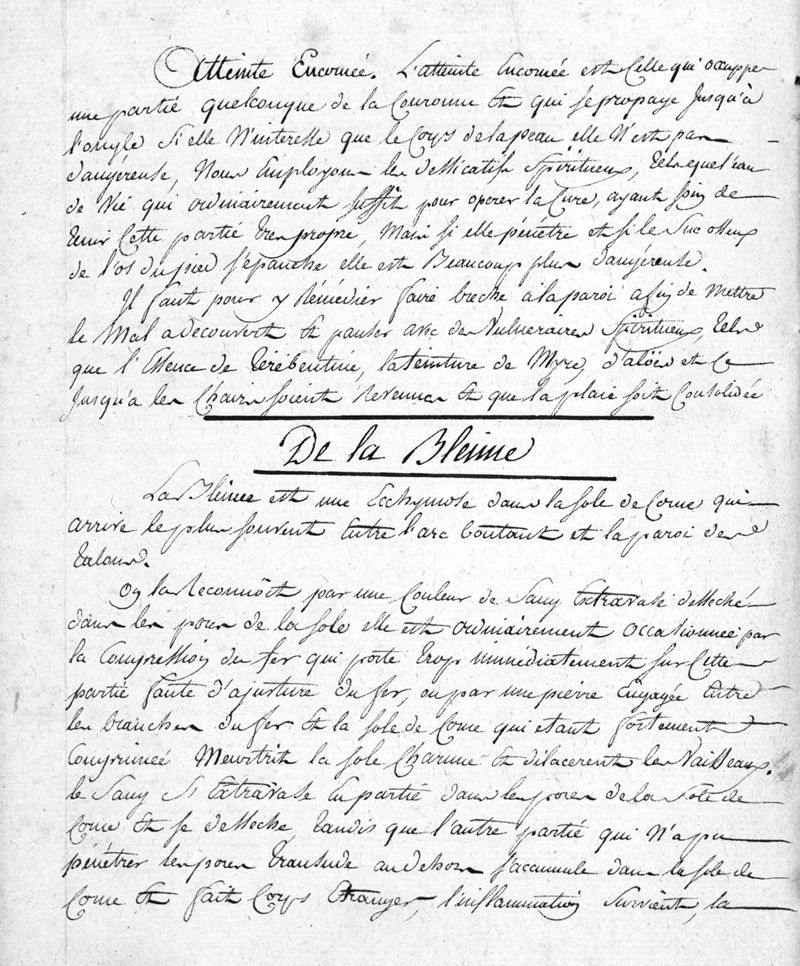 Atteinte Encornée. L'atteinte Encornée est Celle qui occuppe
une partié quelconque de la Couronne et qui se propage Jusqu'à
l'ongle Si elle N'interesse que le Corps de la peau elle N'est pas
dangéreuse, Nous Employons les dessicatifs Spiritueux, tels que l'eau
de Vie qui ordinairement suffit pour operer la Cure, ayant soin de
tenir Cette partié tres propre, Mais si elle pénétre et si le Suc osseux
de l'os du pied s'épanche elle est Beaucoup plus dangéreuse.
Il faut pour y Rémédier faire breche à la paroi afin de Mettre
le Mal a decouvert et panser avec des Vulneraires Spiritueux, tels
que l'Essence de Térébentine, la teinture de Myre, d'aloès et Ce
Jusqu'a les Chairs soient Revenues et que la plaie soit Consolidée
De la Bleime
La Bleime est une Ecchymose dans la sole de Corne qui
arrive le plus souvent Entre l'arc boutant et la paroi des
talons.
On la Reconnoit par une Couleur de Sang Extravasé desseché
dans les pores de la sole elle est ordinairement occasionnée par
la Compression du fer qui porte trop immédiatement sur Cette
partié faute d'ajusture du fer, ou par une pierre Engagée Entre
les branches du fer et la sole de Corne qui etant fortement
Comprimée Meurtrit la sole Charnue et dilacerent les Vaisseaux.
le Sang S'Extravase En partié dans les pores de la Sole de
Corne et se desseche, tandis que l'autre partié qui N'a pu
pénétrer les pores transude au dehors s'acumule dans la sole de
Corne et fait Corps Etranger, l'inflammation Survient, la